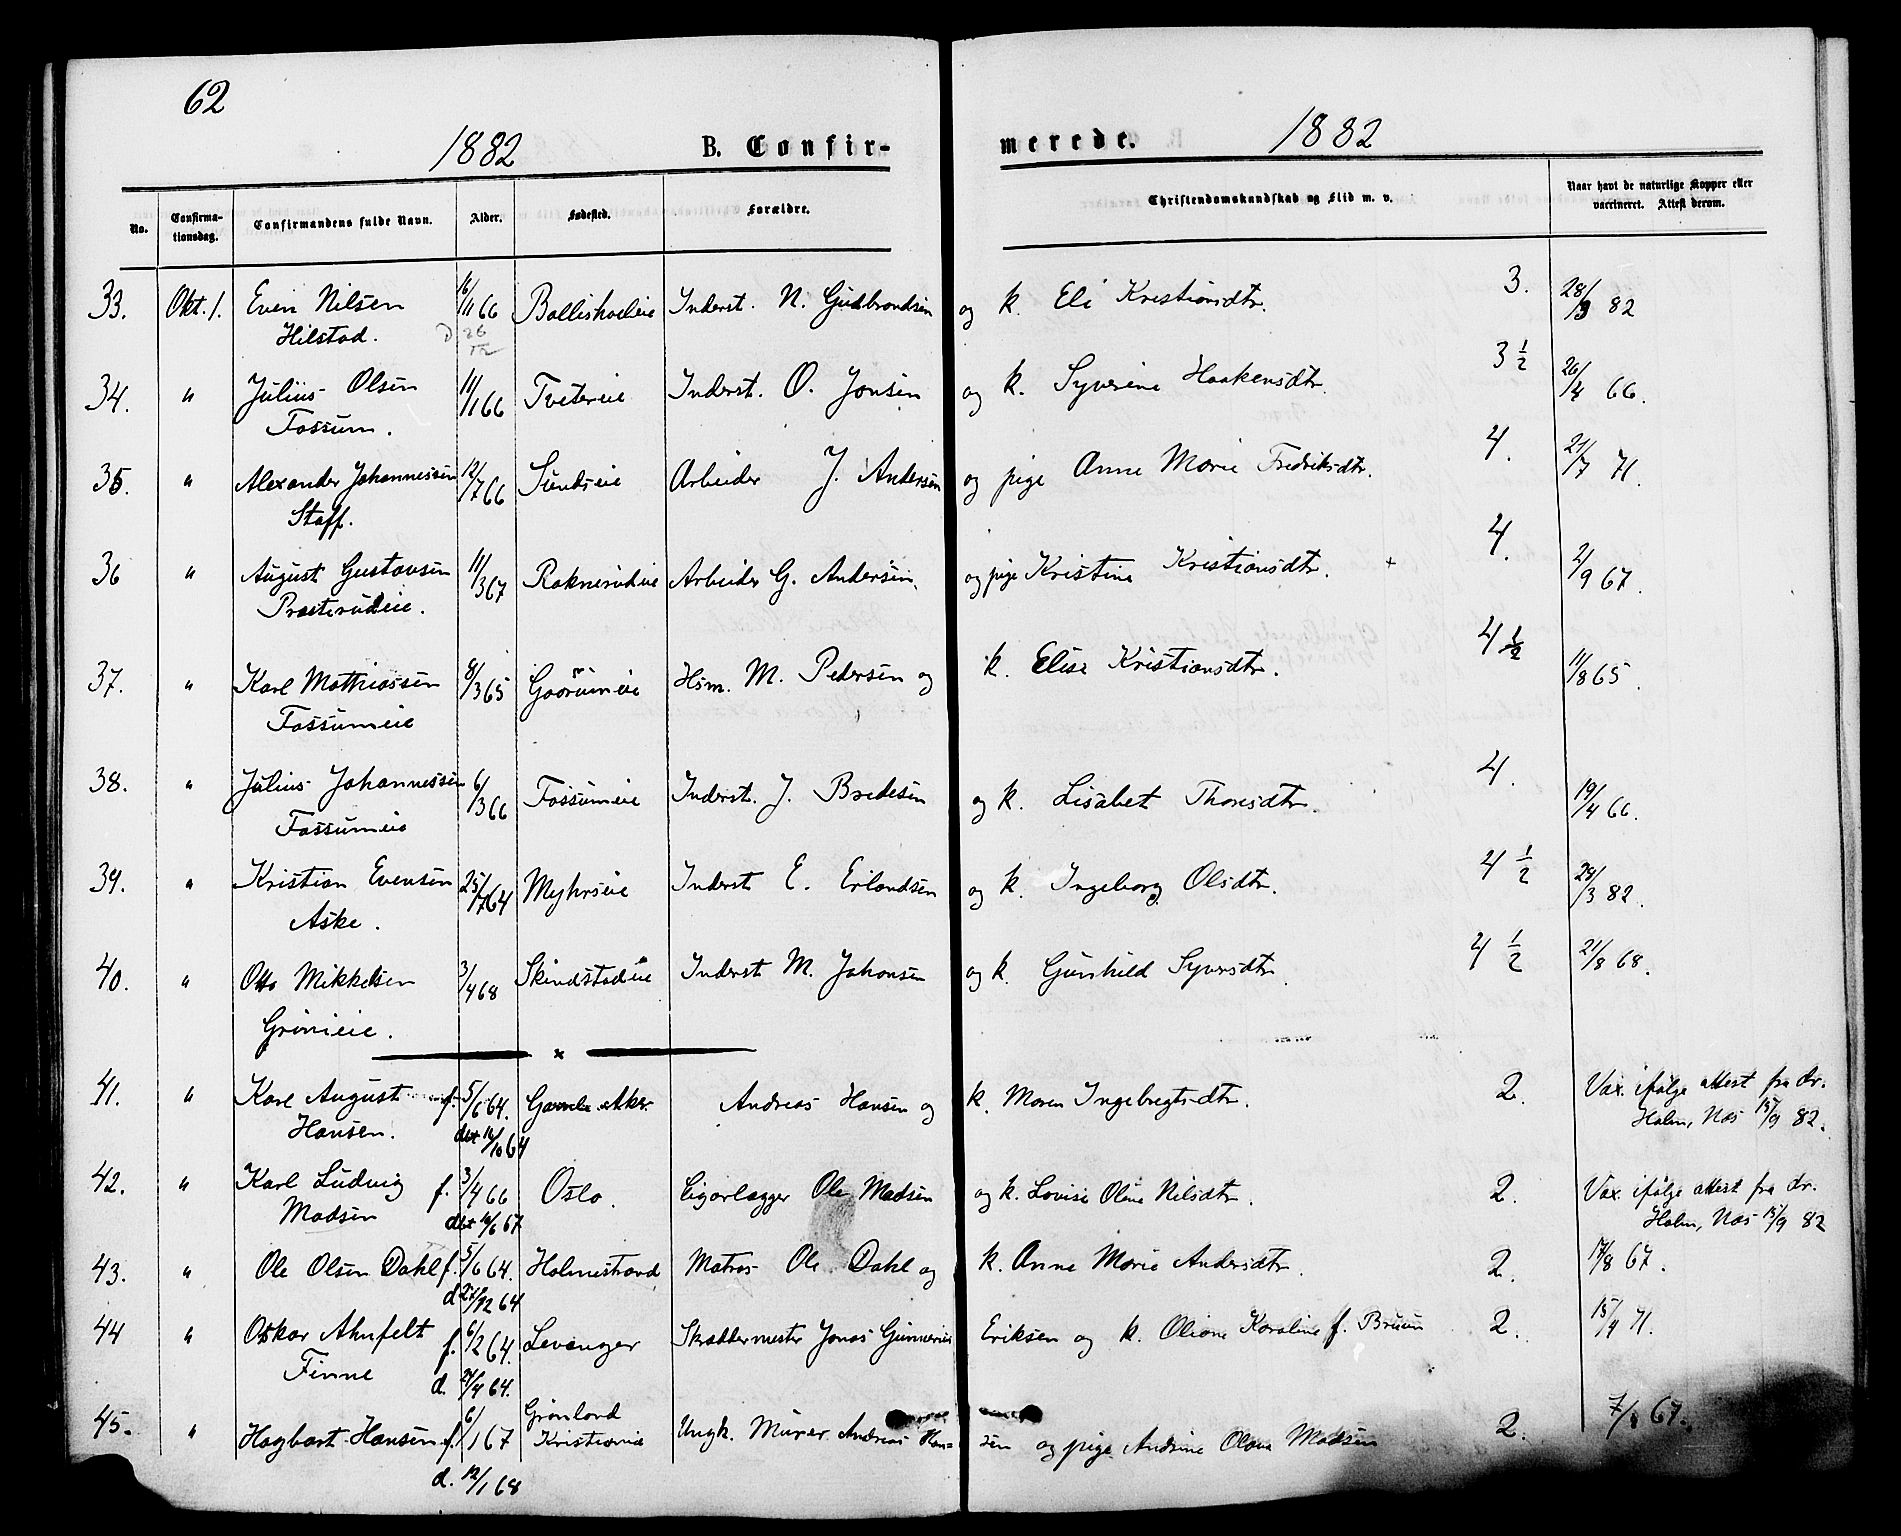 62
1882 B. Confir- merede. 1882
No. Confirma-tionsdag. Confirmandens fulde Navn. Alder. Fødested. Forældre. Christendomskundskab og Flid m. v. Naar havt de naturlige Kopper eller vaccineret. Attest derom.
33. Okt. 1. Even Nilsen 16/11 66 Inderst. N. Gudbrandsen og k. Eli Kristiansdtr. 3. 28/3 82
Hilstad. D 26
34. " Julius Olsen 11/1 66 Tvetereie Inderst. O. Jonsen og k. Syverine Haakensdtr. 3 1/2 26/4 66.
Fossum.
35. " Alexander Johannessen 12/7 66 Sundseie Arbeider J. Andersen og pige Anne Marie Fredriksdtr. 4. 21/7 71.
Staff.
36 " August Gustavsen 11/3 67 Raknerudeie Arbeider G. Andersen. og pige Kristine Kristiansdtr. + 4. 2/9 67.
Præsterudeie.
37. " Karl Mathiassen 8/3 65 Gaarumeie Hsm. M. Pedersen og k. Elise Kristiansdtr. 4 1/2 11/8 65.
Fossumeie
38. " Julius Johannessen 6/3 66 Fossumeie Inderst. J. Bredesen og k. Lisabet Thorsdtr. 4. 19/4 66.
Fossumeie
39. " Kristian Evensen 25/7 64 Myhrseie Inderst E. Erlandsen og k. Ingeborg Olsdtr. 4 1/2 29/3 82.
Aske.
40. " Otto Mikkelsen 3/4 68 Skindstadeie Inderst M. Johansen og k. Gunhild Syversdtr. 4 1/2 21/8 68.
Grinieie.
x
41. " Karl August f. 5/6 64. Gamle Aker Andreas Hansen og k. Maren Ingebregtsdtr. 2. Vax. ifølge attest fra dr.
Hansen. døt 16/10 64 Holm, Næs 15/9 82.
42. " Karl Ludvig f. 3/4 66 Oslo. Cigarlægger Ole Madsen og k. Lovise Oline Nilsdtr. 2. Vax. ifølge attest fra dr.
Madsen døt 16/6 67 Holm, Næs 15/9 82
43. " Ole Olsen Dahl f. 5/6 64. Holmestrand Matros Ole Dahl og k. Anne Marie Andersdtr. 2. 17/8 67.
d 27/12 64
44 " Oskar Ahnfelt f. 6/2 64. Levanger Skræddermester Jonas Gunnerius Eriksen og k. Oliane Karoline f. Bruun 2. 15/4 71.
Finne d. 24/4 64.
45. " Hagbart Hansen f. 6/1 67 Grønland Kristiania Ungk. Murer Andreas Han-sen og pige Andrine Olava Madsen 2. 67.
d. 12/1 68